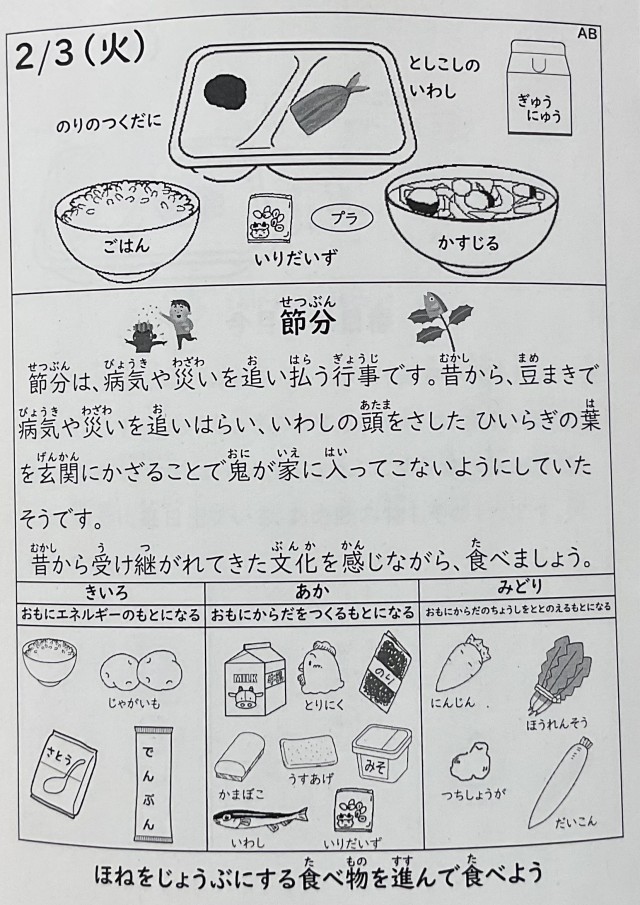 AB
2/3(火)
としこしの
いわし
ぎゅう
にゅう
のりのつくだに
ごはん
いりだいず
プラ
かすじる
せつぶん
節分
せつぶん びょうき わざわ お はら ぎょうじ むかし まめ
節分は、病気や災いを追い払う行事です。昔から、豆まきで
びょうき わざわ お あたま は
病気や災いを追いはらい、いわしの頭をさした ひいらぎの葉
げんかん おに いえ はい
を玄関にかざることで鬼が家に入ってこないようにしていた
そうです。
むかし う つ ぶんか かん た
昔から受け継がれてきた文化を感じながら、食べましょう。
きいろ あか みどり
おもにエネルギーのもとになる おもにからだをつくるもとになる おもにからだのちょうしをととのえるもとになる
じゃがいも
さとう
でんぷん
MILK
牛乳
とりにく
のり
かまぼこ
うすあげ
みそ
いわし
いりだいず
にんじん
ほうれんそう
つちしょうが
だいこん
た もの すす た
ほねをじょうぶにする食べ物を進んで食べよう